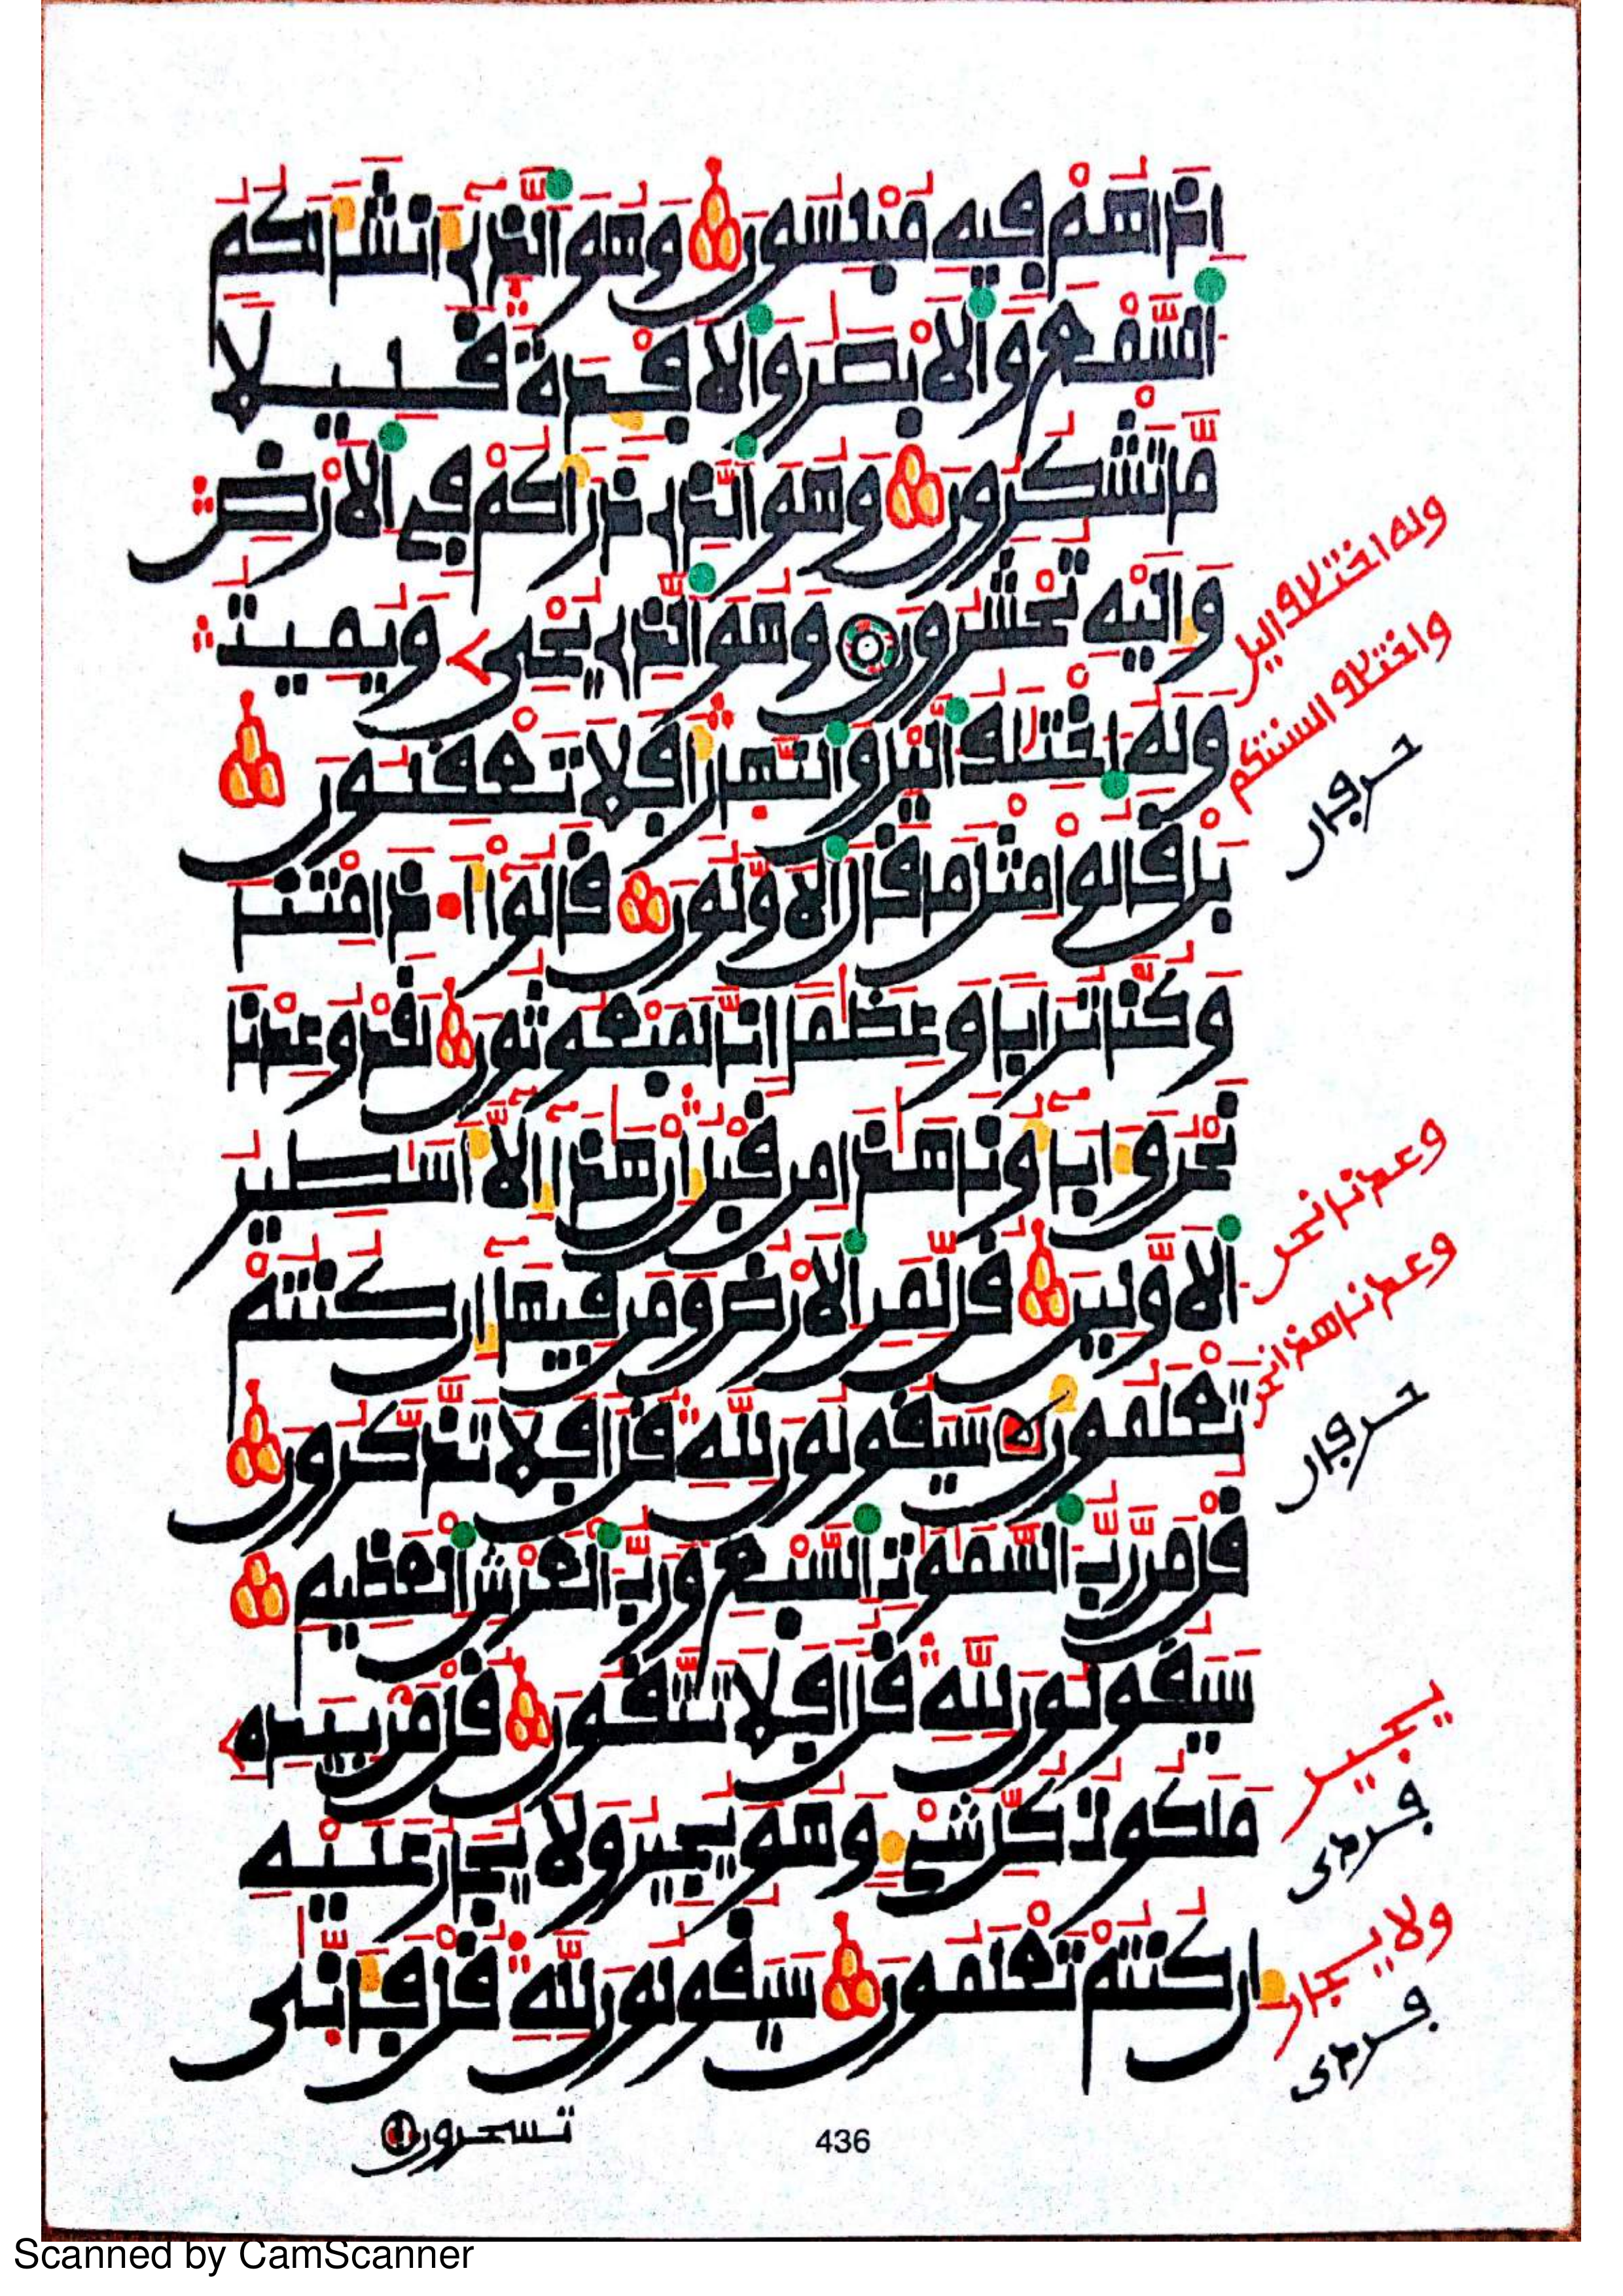 إذا هم فيه مبلسون وهو الذي أنشأ لكم
السمع والأبصر والأفدة قليلا
ما تشكرون وهو الذي ذرأكم في الأرض
وإليه تحشرون وهو الذي يحيى ويميت
وله اختلف اليل والنهار أفلا تعقلون
بل قالوا مثل ما قال الأولون قالوا أ ذا متنا
وكنا ترابا وعظما إنا لمبعوثون لقد وعدنا
نحن وءاباؤنا هذا من قبل إن هذا إلا أسطير
الأولين قل لمن الأرض ومن فيها إن كنتم
تعلمون سيقولون لله قل أفلا تذكرون
قل من رب السموت السبع ورب العرش العظيم
سيقولون لله قل أفلا تتقون قل من بيده
ملكوت كل شيء وهو يجير ولا يجار عليه
إن كنتم تعلمون سيقولون لله قل فأنى
تسحرون
وله اختلاف اليل
واختلاف السنتكم
حرفان
وعدنا نحن
وعدنا هذا نحن
حرفان
يجير
فردى
ولا يجار
فردى
436
Scanned by CamScanner